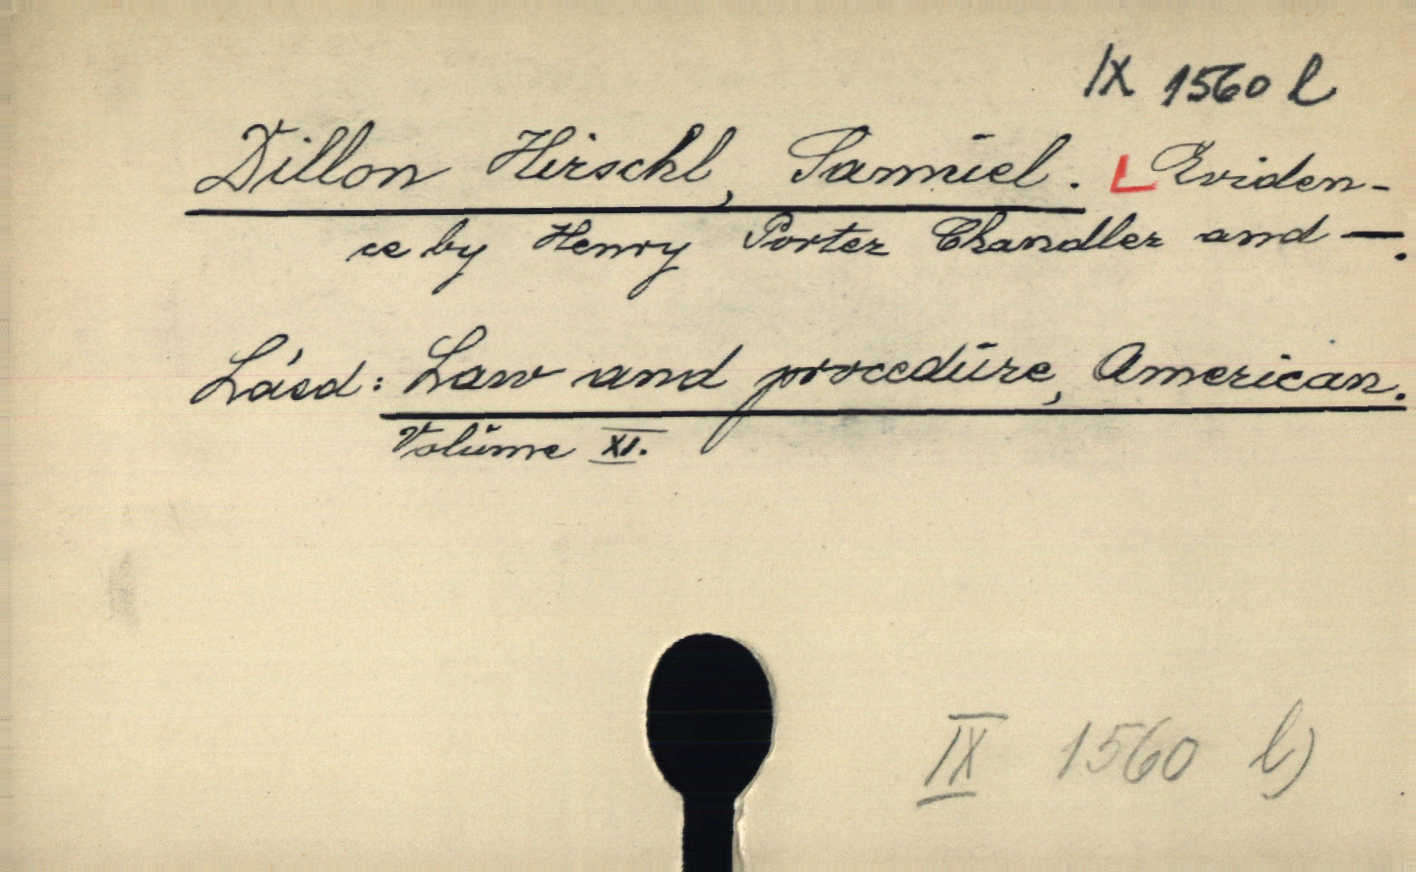 IX 1560 l
Dillon Hirschl, Samuel. Eviden-
ce by Henry Porter Chandler and —.
Lásd: Law and procedure, American.
Volume XI.
IX 1560 l)